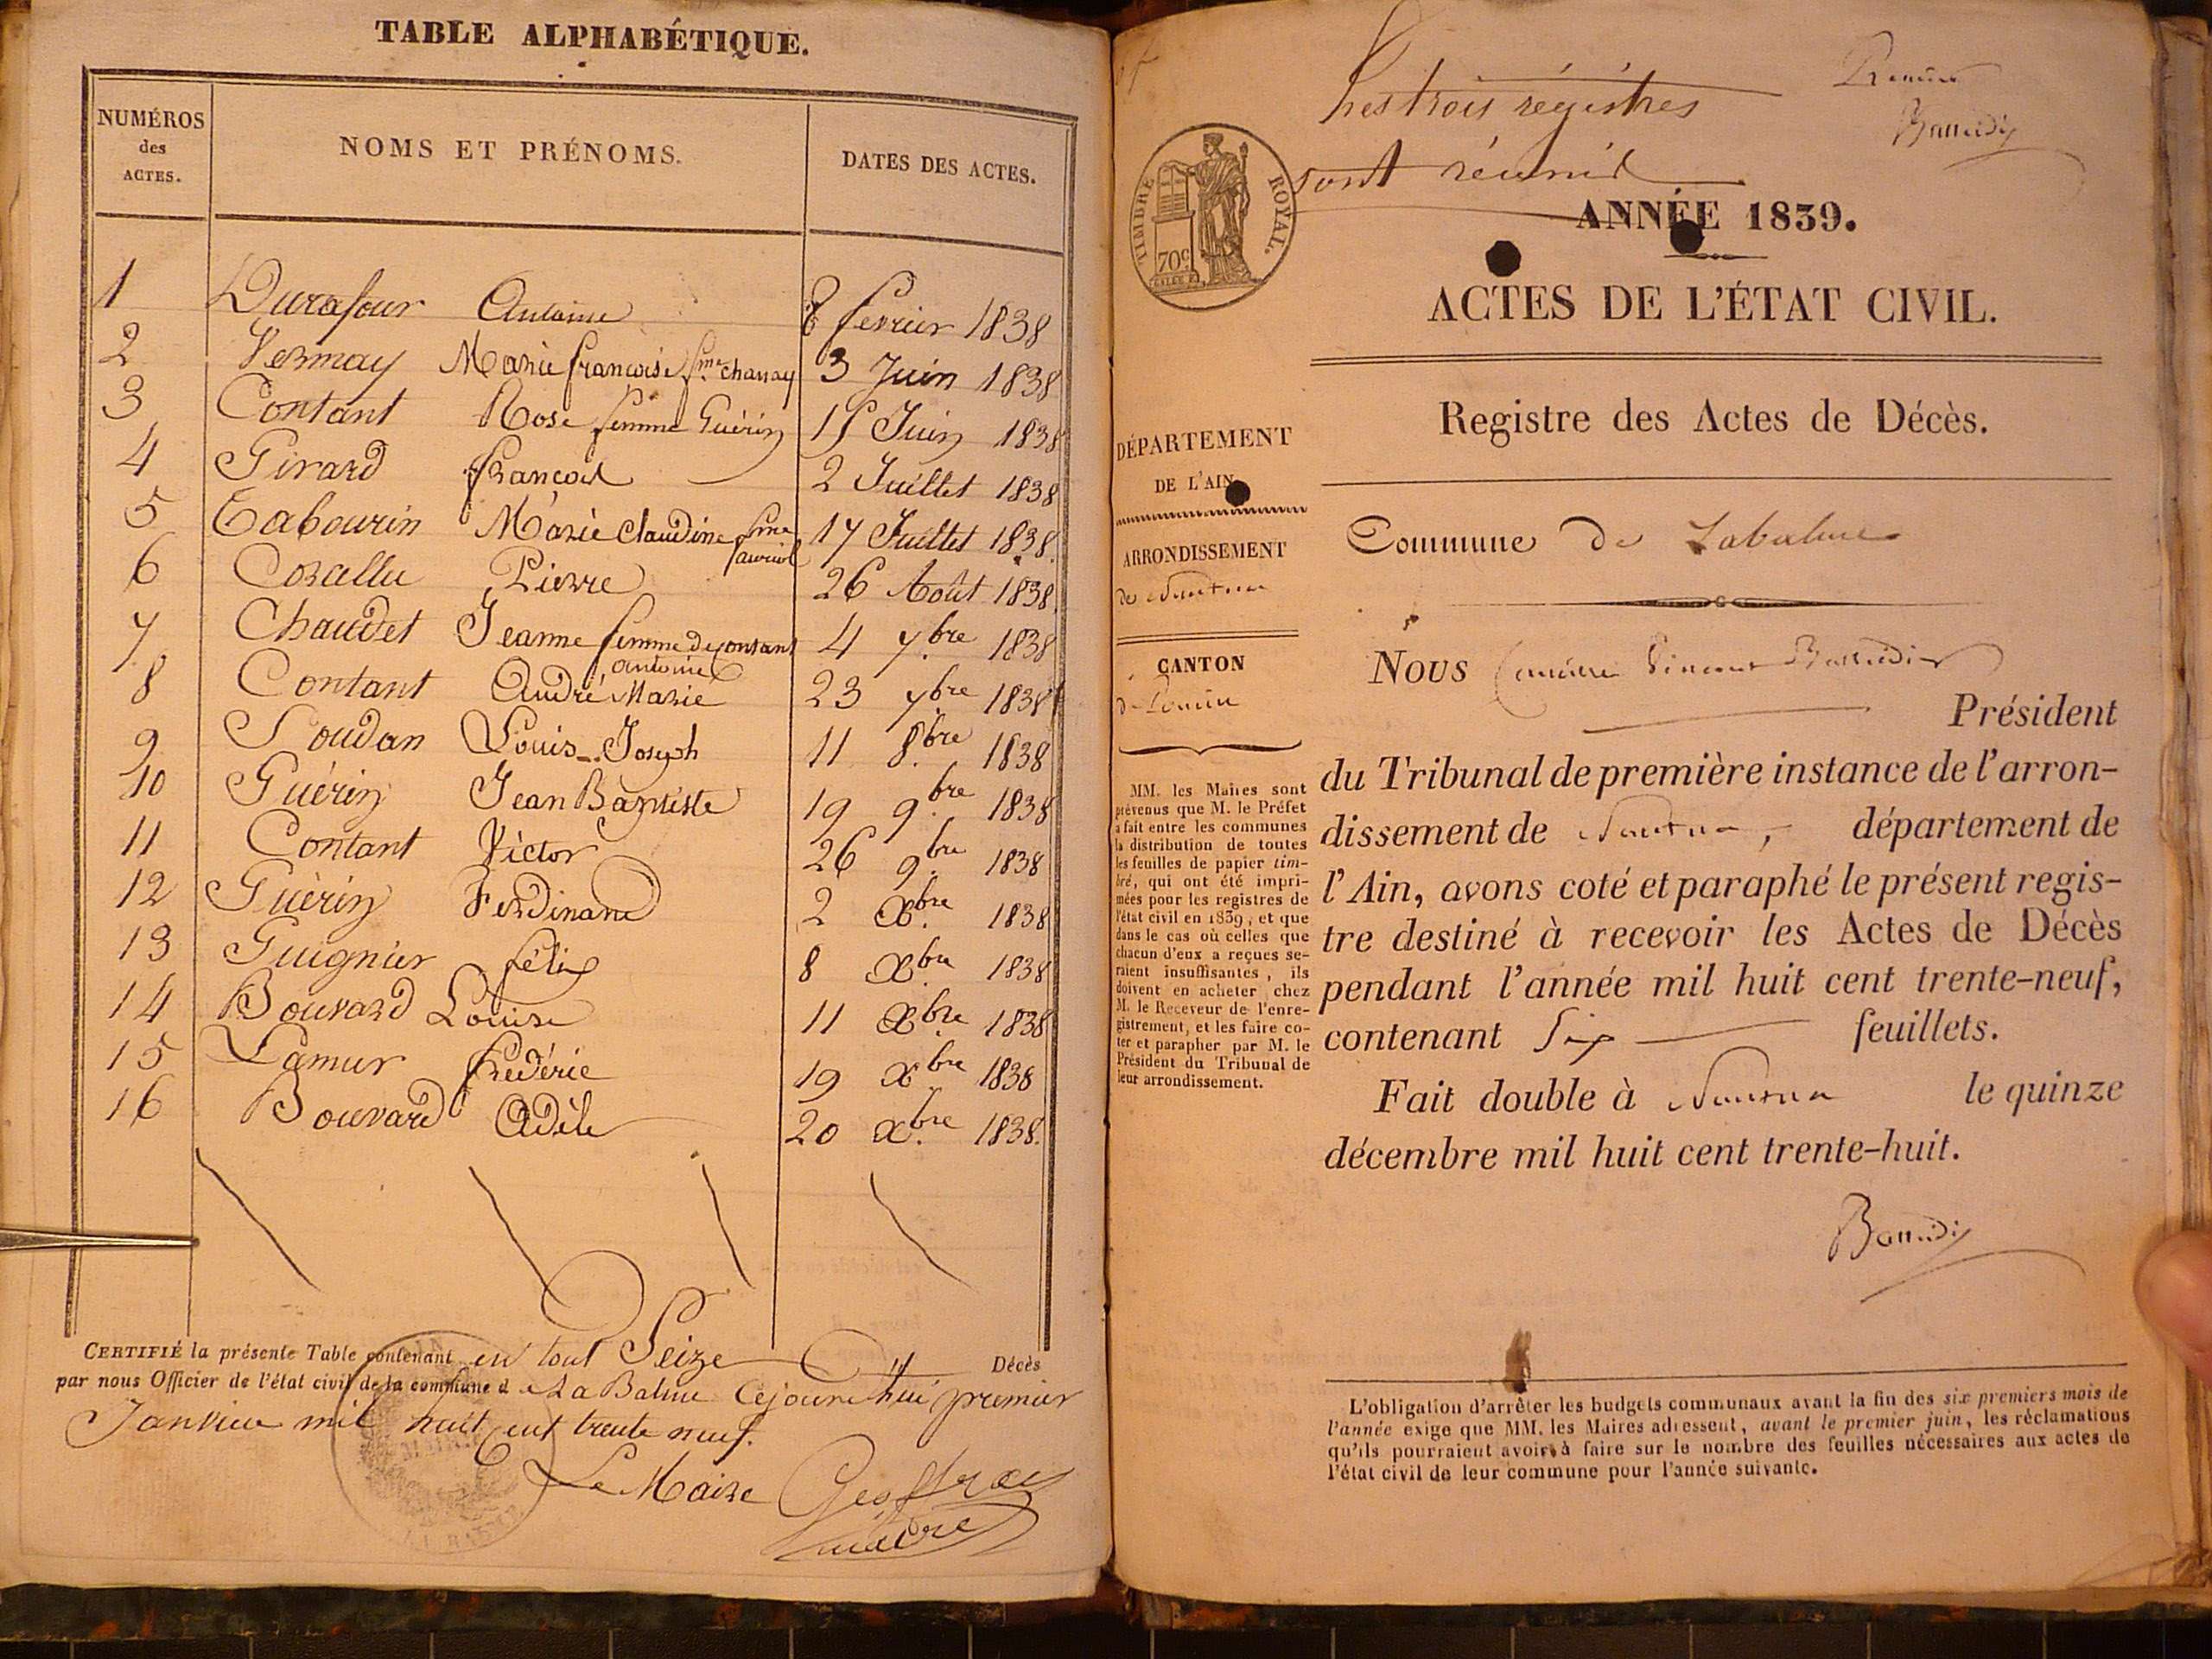 TABLE ALPHABÉTIQUE.
NUMÉROS
des
ACTES.
NOMS ET PRÉNOMS.
DATES DES ACTES.
1 Durafour Antoine 8 fevrier 1838
2 Vermay Marie françoise fme charray 3 Juin 1838
3 Contant Rose femme Guérin 15 Juin 1838
4 Girard françois 2 Juillet 1838
5 Tabourin Marie Claudine fme 17 Juillet 1838
6 Pierre 26 Août 1838
7 Chaudet Jeanne femme de contant 4 7bre 1838
antoine
8 Contant André Marie 23 7bre 1838
9 Soudan Louis-Joseph 11 8bre 1838
10 Guérin Jean Baptiste 19 9bre 1838
11 Contant Victor 26 9bre 1838
12 Guérin Ferdinand 2 Xbre 1838
13 Guignier félix 8 Xbre 1838
14 Bouvard Louise 11 Xbre 1838
15 Lamur frédéric 19 Xbre 1838
16 Bouvard Adèle 20 Xbre 1838
CERTIFIÉ la présente Table contenant en tout Seize Décès
par nous Officier de l'état civil de la commune d e La Balme Cejourd'hui premier
Janvier mil huit cent trente neuf.
Le Maire Geoffray
Les trois régistres
sont réunis
TIMBRE ROYAL.
70c
ANNÉE 1839.
ACTES DE L'ÉTAT CIVIL.
Registre des Actes de Décès.
DÉPARTEMENT
DE L'AIN
ARRONDISSEMENT
de Nantua
CANTON
de Poncin
MM. les Maires sont
prévenus que M. le Préfet
a fait entre les communes
la distribution de toutes
les feuilles de papier tim-
bré, qui ont été impri-
mées pour les registres de
l'état civil en 1839, et que
dans le cas où celles que
chacun d'eux a reçues se-
raient insuffisantes, ils
doivent en acheter chez
M. le Receveur de l'enre-
gistrement, et les faire co-
ter et parapher par M. le
Président du Tribunal de
leur arrondissement.
Commune de Labalme
Nous
Président
du Tribunal de première instance de l'arron-
dissement de Nantua, département de
l'Ain, avons coté et paraphé le présent regis-
tre destiné à recevoir les Actes de Décès
pendant l'année mil huit cent trente-neuf,
contenant Six feuillets.
Fait double à Nantua le quinze
décembre mil huit cent trente-huit.
L'obligation d'arrêter les budgets communaux avant la fin des six premiers mois de
l'année exige que MM. les Maires adressent, avant le premier juin, les réclamations
qu'ils pourraient avoir à faire sur le nombre des feuilles nécessaires aux actes de
l'état civil de leur commune pour l'année suivante.